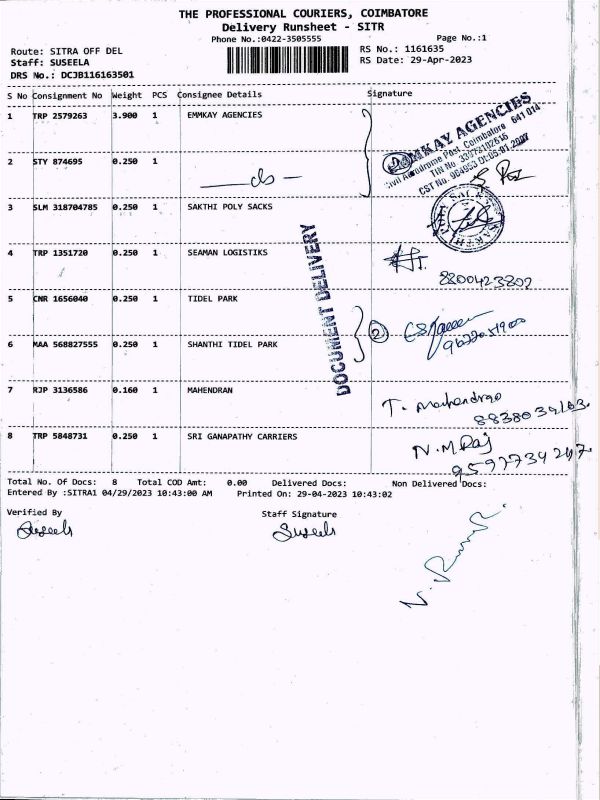 THE PROFESSIONAL COURIERS, COIMBATORE
Delivery Runsheet - SITR
Phone No.:0422-3505555
Page No.:1
Route: SITRA OFF DEL
RS No.: 1161635
Staff: SUSEELA
RS Date: 29-Apr-2023
DRS No.: DCJB116163501
S No Consignment No Weight PCS Consignee Details Signature
1 TRP 2579263 3.900 1 EMMKAY AGENCIES
EMMKAY AGENCIES
Civil Aerodrome Post, Coimbatore 641 014
TIN No
CST No.
2 STY 874695 0.250 1
do
3 SLM 318704785 0.250 1 SAKTHI POLY SACKS
4 TRP 1351720 0.250 1 SEAMAN LOGISTIKS
8800423802
DOCUMENT DELIVERY
5 CNR 1656040 0.250 1 TIDEL PARK
2
6 MAA 568827555 0.250 1 SHANTHI TIDEL PARK
7 RJP 3136586 0.160 1 MAHENDRAN
T. Mahendran
8 TRP 5848731 0.250 1 SRI GANAPATHY CARRIERS
N.M.Raj
Total No. Of Docs: 8 Total COD Amt: 0.00 Delivered Docs: Non Delivered Docs:
Entered By :SITRA1 04/29/2023 10:43:00 AM Printed On: 29-04-2023 10:43:02
Verified By Staff Signature
Suseela Suseela